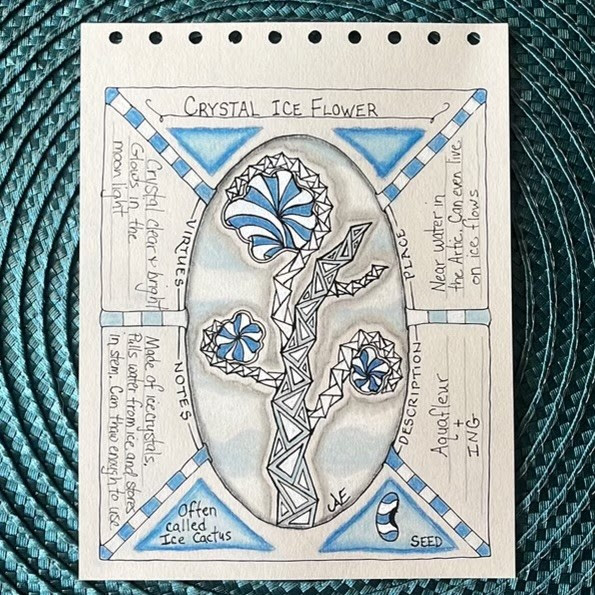 CRYSTAL ICE FLOWER
VIRTUES
Crystal clear & bright
Glows in the
moon light
PLACE
Near water in
the Artic. Can even live
on ice flows
NOTES
Made of ice crystals.
Pulls water from ice and stores
in stem. Can thaw enough to use
DESCRIPTION
Aquafleur
+
ING
Often
called
Ice Cactus
SEED